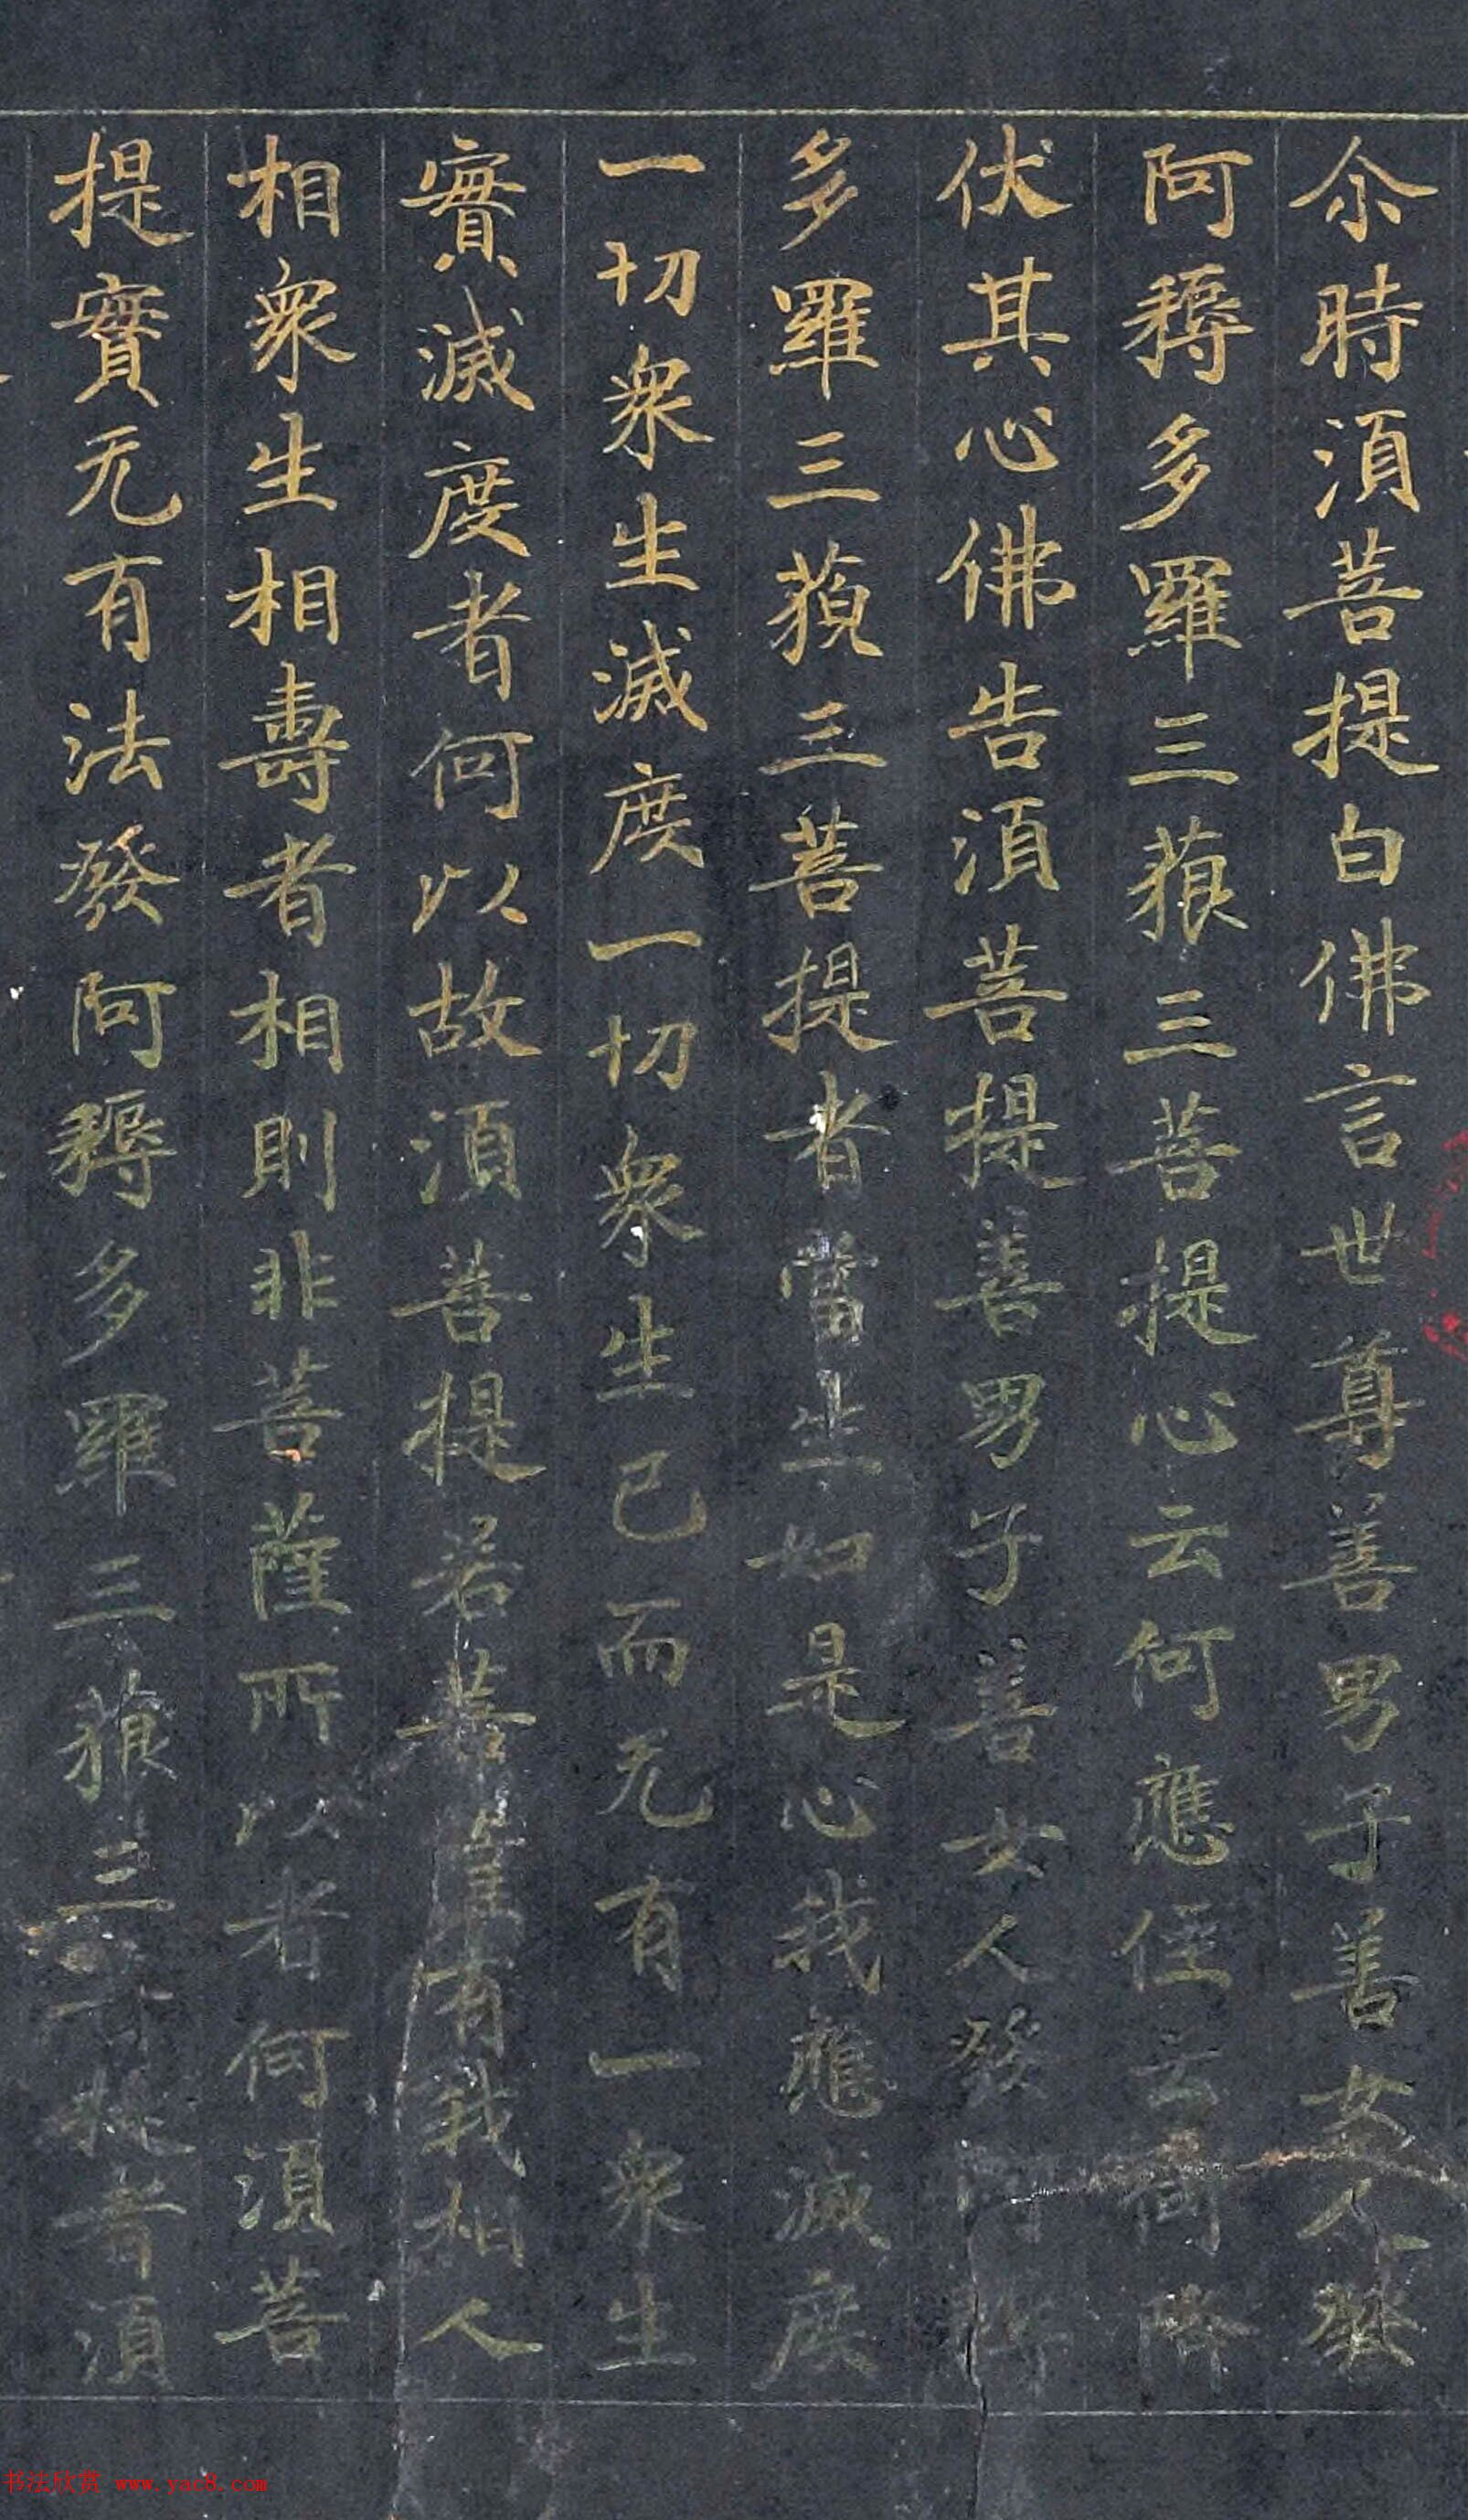 尒時須菩提白佛言世尊善男子善女人發
阿耨多羅三藐三菩提心云何應住云何降
伏其心佛告須菩提善男子善女人發阿耨
多羅三藐三菩提者當生如是心我應滅度
一切衆生滅度一切衆生已而无有一衆生
實滅度者何以故須菩提若菩薩有我相人
相衆生相壽者相則非菩薩所以者何須菩
提實无有法發阿耨多羅三藐三菩提者須
书法欣赏 www.yac8.com